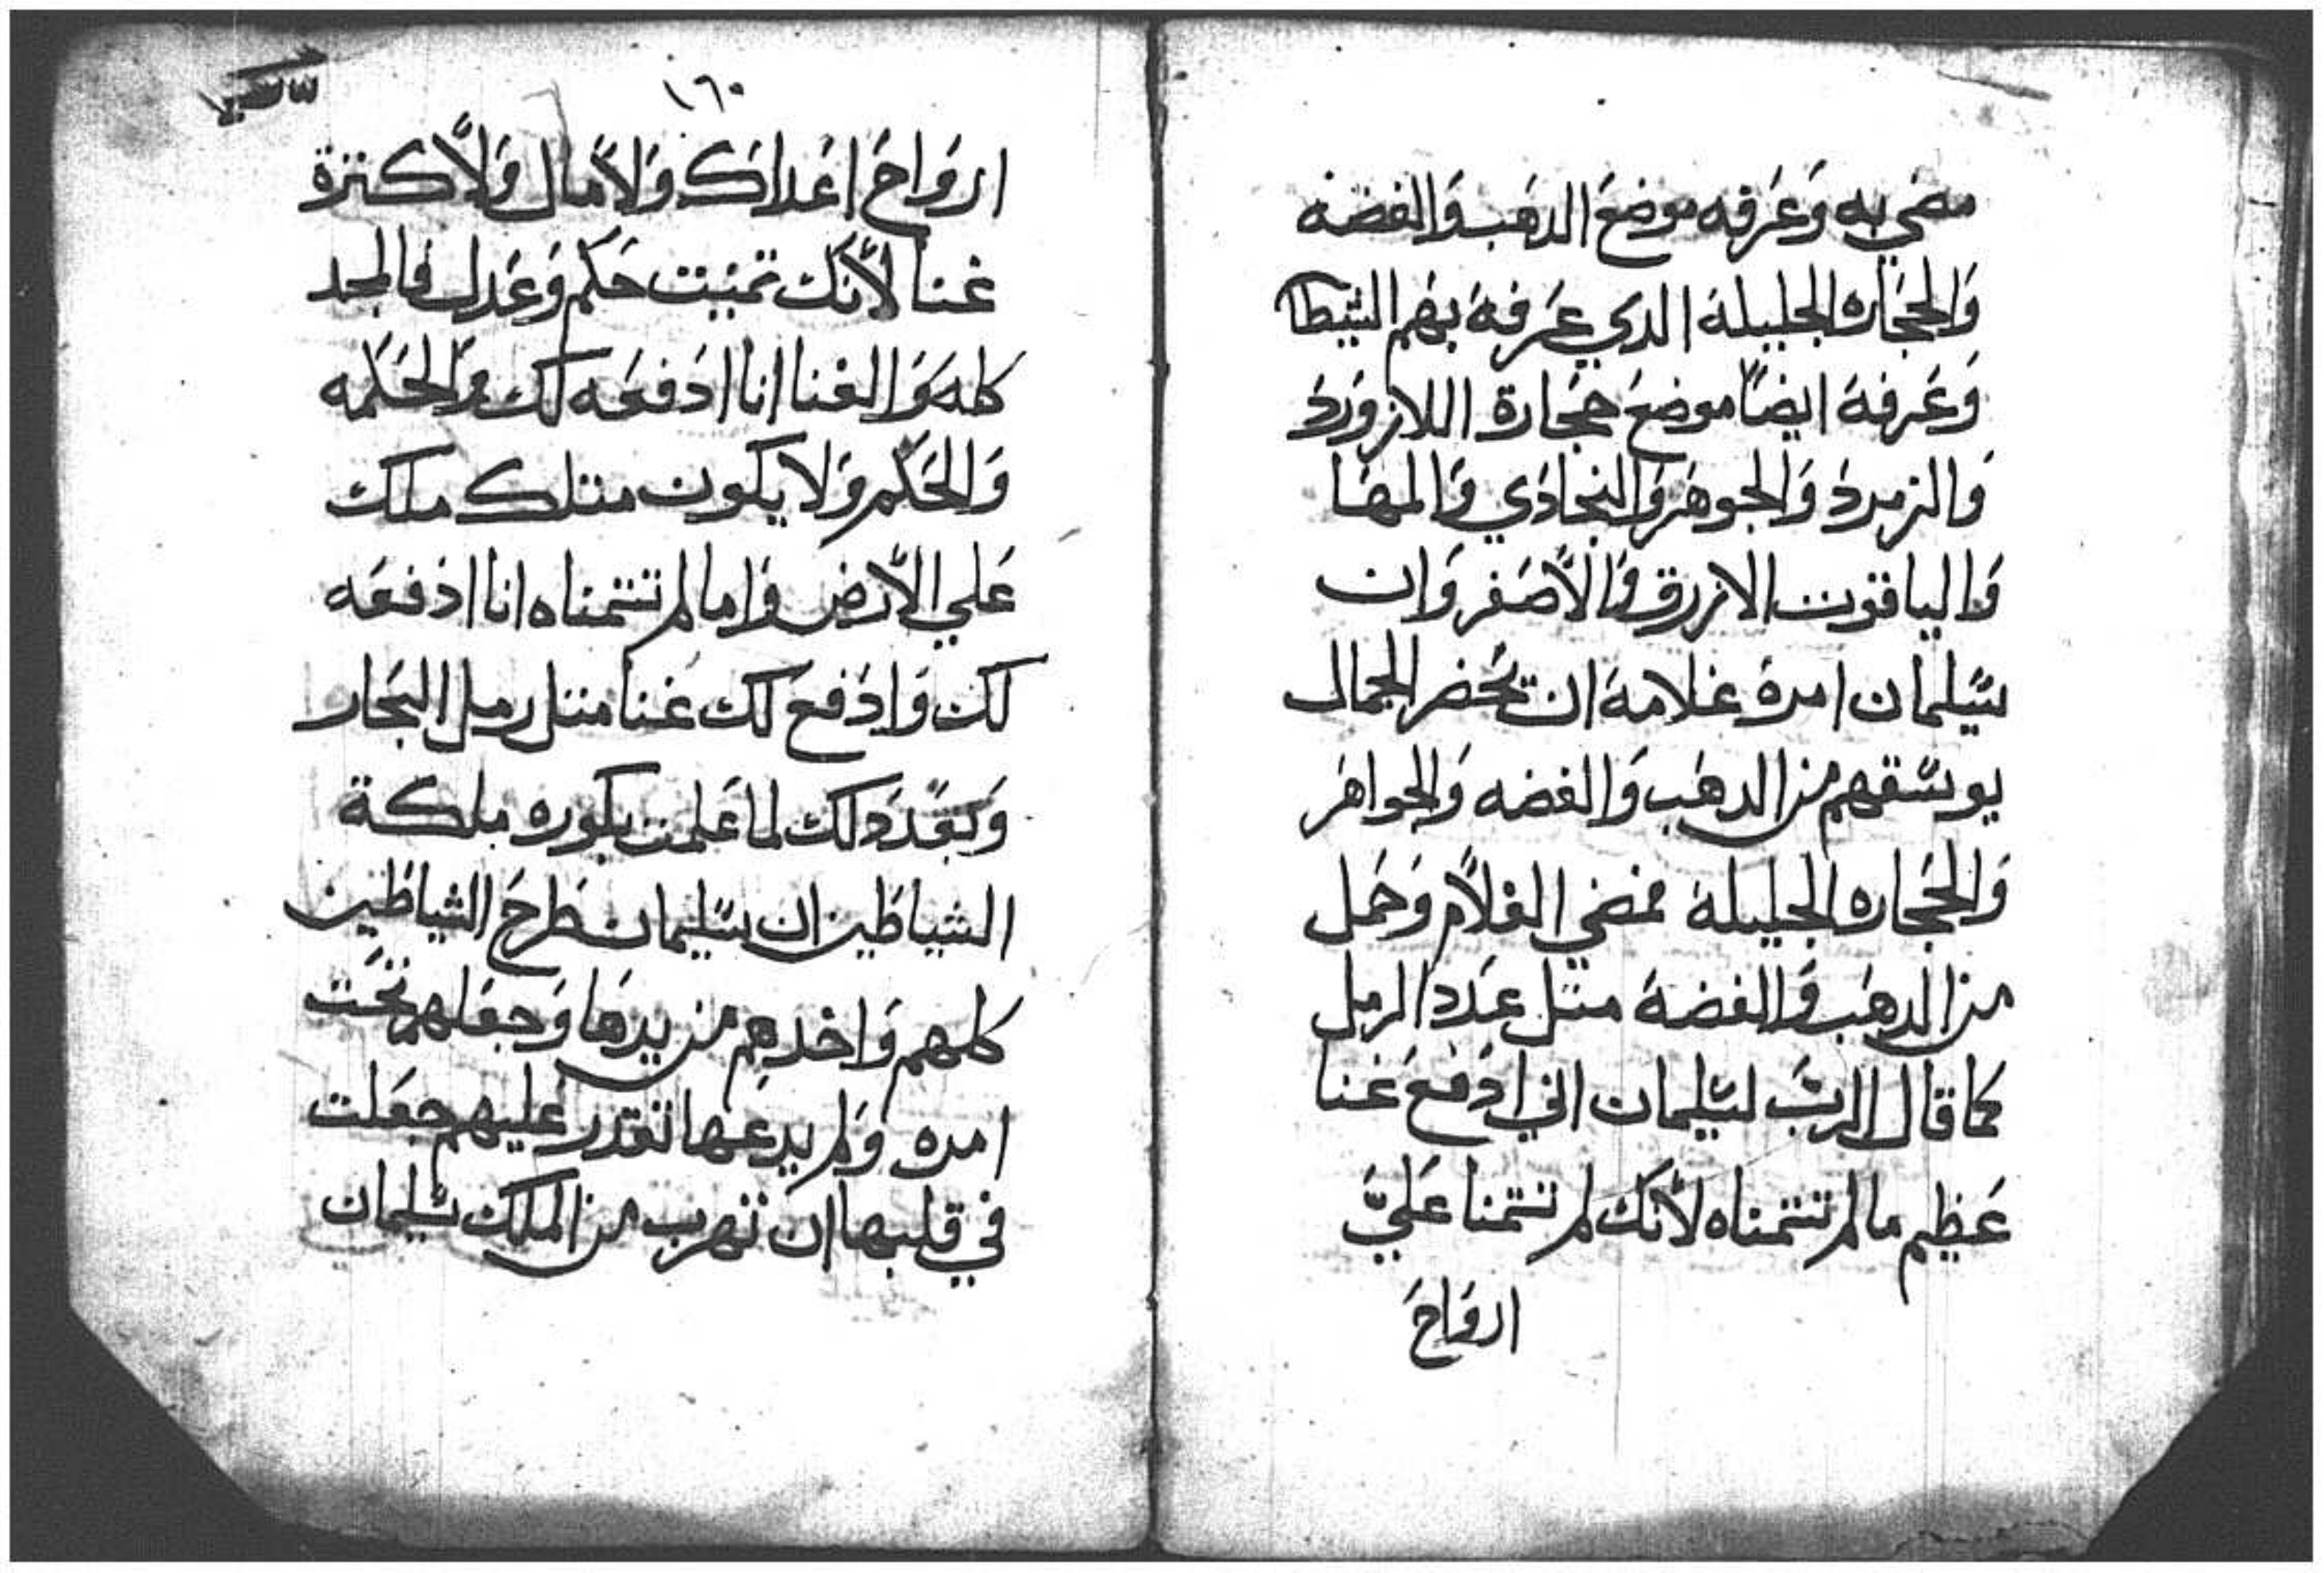 مضي به وَعَرفه موضعَ الدهَب وَالفضه
وَالحجَاره الجليلة الدي عَرفة بهَم الشيطا
وَعَرفة ايضاً موضعَ حجَارة اللازوَردَ
وَالزمردَ وَالجوهرَ وَالبجادَي وَالمهَا
وَالياقوت الازرق وَالاصَفر وَان
سَليمان امرة غلامة ان تحَضر الجمال
يوسَقهم من الدهَب وَالفضه وَالجواهَر
وَالحجَاره الجليلة فمضي الغلام وَحمَل
من الدهَب وَالفضة متل عَددَ الرمل
كما قال الربَ لسَليمان اني ادَفعَ غنا
عَظيم ما لم تتمناه لانك لم تتمنا عَليَّ
اروَاحَ
١٦٠
اروَاحَ اعَداك وَلا مال وَلا كترة
غنا لانكَ تمنيت حَكم وَعَدل فالمجد
كلهَ وَالغنا انا ادَفعَه لك وَالحَكمه
وَالحَكم وَلا يكون متلك ملك
عَلي الارض وَاما لم تتمناه انا ادَفعَه
لك وَادَفعَ لك غنا متل رمل البحَار
وَبعَدَ دَلك لما عَلمت بكوره ملكة
الشياطين ان سَليمان طرحَ الشياطين
كلهم وَاخدهم من يدهَا وَجعَلهم تحَت
امره وَلم يدعَها تقدر عَليهم جعَلت
في قلبها ان تهرب من الملك سَليمان